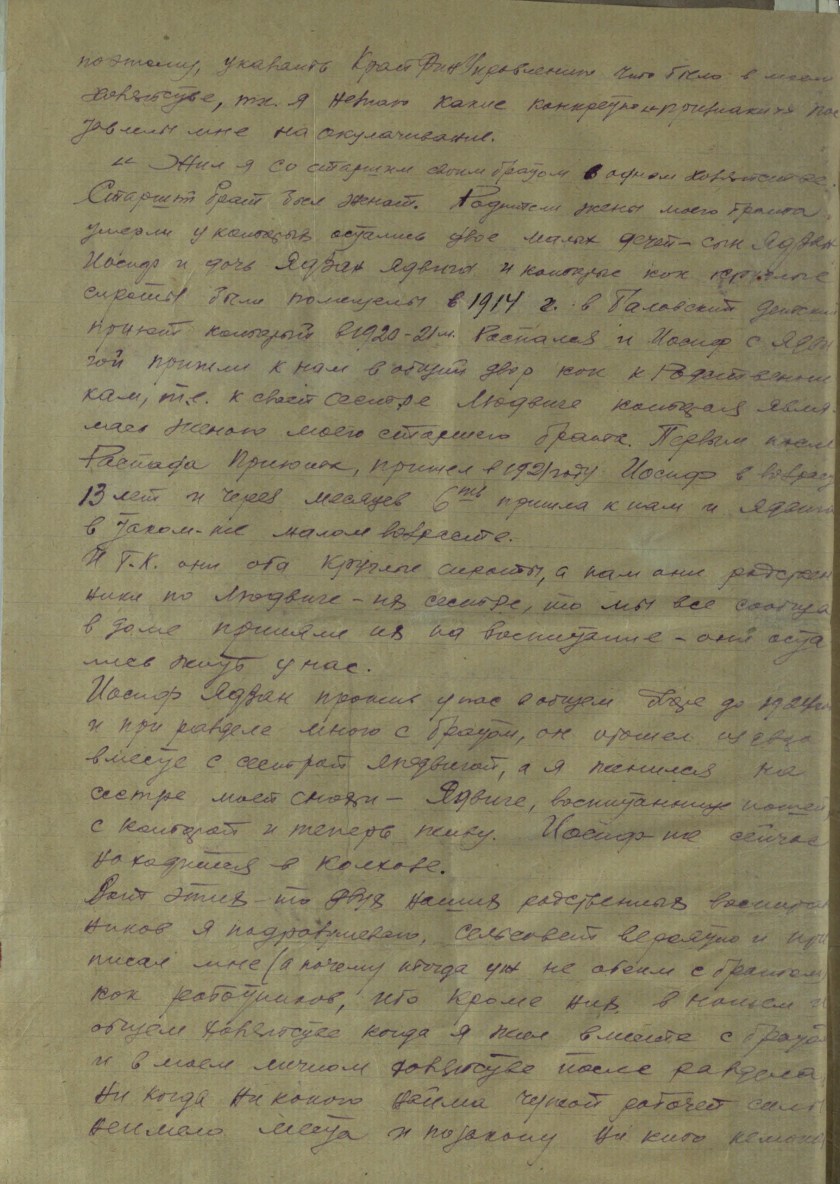 поэтому, указать Край Фин Управлению что было в моем
хозяйстве, т.к. я незнаю какие конкретно признаки
мне на окулачивание.
Жил я со старшим своим братом в одном хозяйстве.
Старший брат был женат. Родители жены моего брата
умерли у которых остались двое малых детей – сын Ядзан
Иосиф и дочь Ядзан Ядвига и которые как круглые
сироты были помещены в 1914 г. в детский
приют который в 1920-21 г. Распался и Иосиф с Ядви
гой пришли к нам в общий двор как к Родственни
кам, т.е. к своей сестре Людвиге которая явля
лась женою моего старшего брата. Первым после
Распада Приюта, пришел в 1921 году Иосиф в возрасте
13 лет и через месяцев 6ть пришла к нам и Ядвига
в таком-же малом возрасте.
И т.к. они оба круглые сироты, а нам они родствен
ники по Людвиге – их сестре, то мы все сообща
в доме приняли их на воспитание – они оста
лись жить у нас.
Иосиф Ядзан прожил у нас в общем до
и при разделе много с братом, он отошел
вместе с сестрой Людвигой, а я женился на
сестре моей снохи – Ядвиге, воспитаннице нашей
с которой и теперь живу. Иосиф же сейчас
находится в колхозе.
Вот этих-то двух наших родственных воспитан
ников я подразумеваю, сельсовет вероятно и при
писал мне (а почему тогда уж не обеим с братом)
как работников, ибо кроме них в нашем
общем хозяйстве когда я жил вместе с братом
и в моем личном хозяйстве после раздела
ни когда ни какого найма чужой рабочей силы
неимело места и по закону ни кто